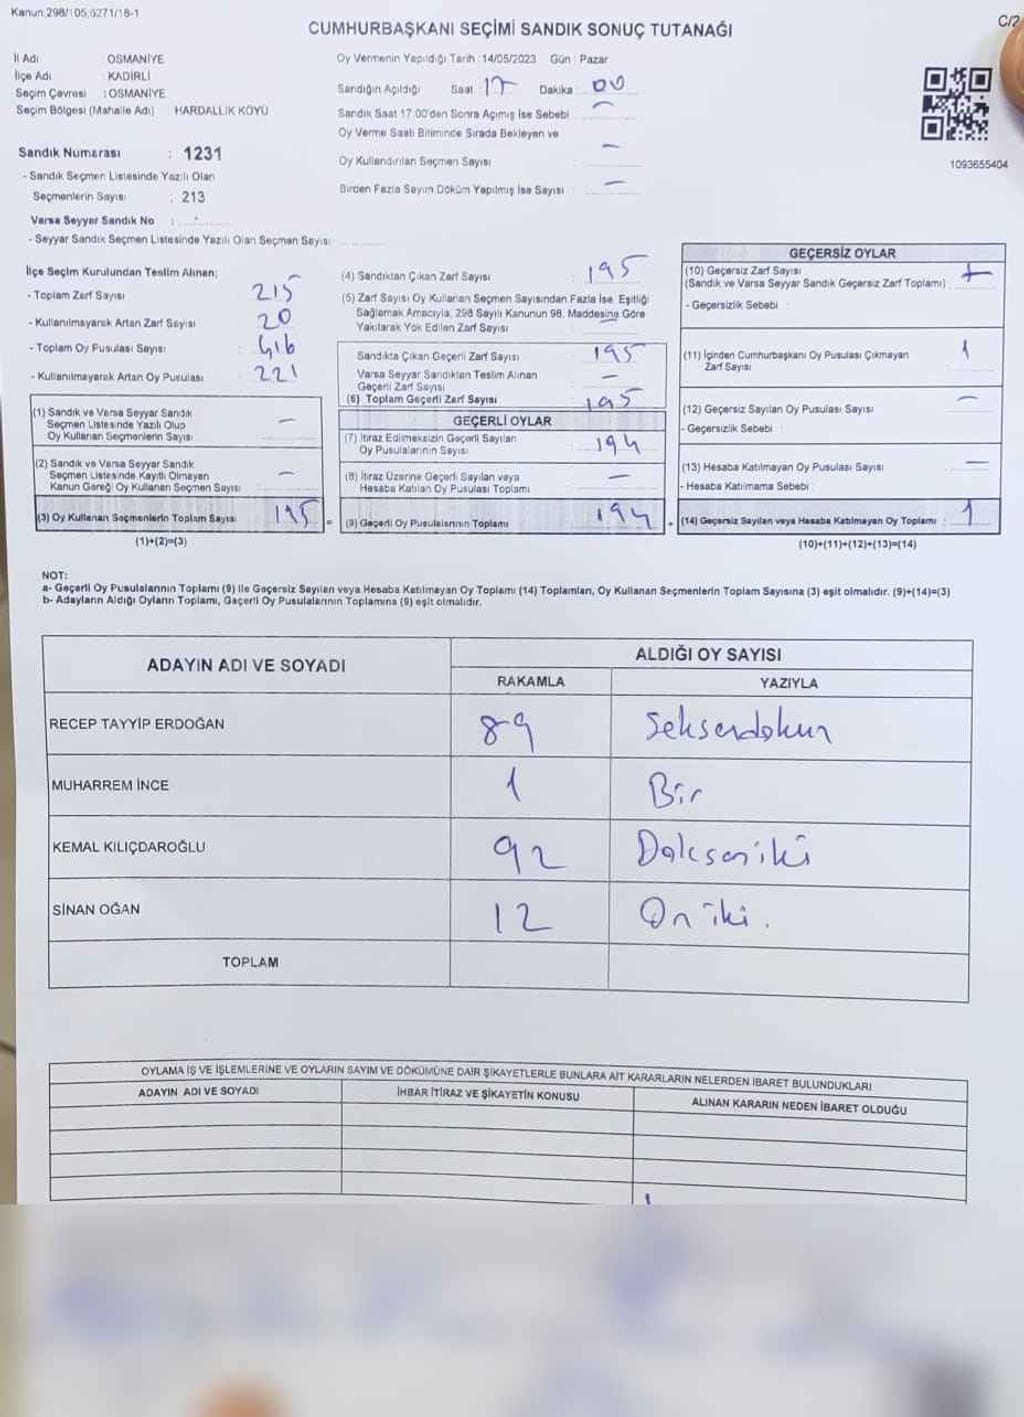 Kanun:298/105,6271/18-1
C/2
CUMHURBAŞKANI SEÇİMİ SANDIK SONUÇ TUTANAĞI
İl Adı : OSMANİYE
İlçe Adı : KADİRLİ
Seçim Çevresi : OSMANİYE
Seçim Bölgesi (Mahalle Adı) HARDALLIK KÖYÜ
Sandık Numarası : 1231
- Sandık Seçmen Listesinde Yazılı Olan
Seçmenlerin Sayısı : 213
Varsa Seyyar Sandık No :
- Seyyar Sandık Seçmen Listesinde Yazılı Olan Seçmen Sayısı
Oy Vermenin Yapıldığı Tarih :14/05/2023 Gün : Pazar
Sandığın Açıldığı Saat : 17 Dakika : 00
Sandık Saat 17:00'den Sonra Açımış İse Sebebi —
Oy Verme Saati Bitiminde Sırada Bekleyen ve
Oy Kullandırılan Seçmen Sayısı : —
Birden Fazla Sayım Döküm Yapılmış İse Sayısı : —
1093655404
İlçe Seçim Kurulundan Teslim Alınan;
- Toplam Zarf Sayısı : 215
- Kullanılmayarak Artan Zarf Sayısı : 20
- Toplam Oy Pusulası Sayısı : 416
- Kullanılmayarak Artan Oy Pusulası : 221
(1) Sandık ve Varsa Seyyar Sandık
Seçmen Listesinde Yazılı Olup
Oy Kullanan Seçmenlerin Sayısı —
(2) Sandık ve Varsa Seyyar Sandık
Seçmen Listesinde Kayıtlı Olmayan
Kanun Gereği Oy Kullanan Seçmen Sayısı —
(3) Oy Kullanan Seçmenlerin Toplam Sayısı 195
(1)+(2)=(3)
(4) Sandıktan Çıkan Zarf Sayısı : 195
(5) Zarf Sayısı Oy Kullanan Seçmen Sayısından Fazla İse, Eşitliği
Sağlamak Amacıyla, 298 Sayılı Kanunun 98. Maddesine Göre
Yakılarak Yok Edilen Zarf Sayısı —
Sandıkta Çıkan Geçerli Zarf Sayısı 195
Varsa Seyyar Sandıktan Teslim Alınan
Geçerli Zarf Sayısı —
(6) Toplam Geçerli Zarf Sayısı 195
GEÇERLİ OYLAR
(7) İtiraz Edilmeksizin Geçerli Sayılan
Oy Pusulalarının Sayısı 194
(8) İtiraz Üzerine Geçerli Sayılan veya
Hesaba Katılan Oy Pusulası Toplamı —
= (9) Geçerli Oy Pusulalarının Toplamı 194
GEÇERSİZ OYLAR
(10) Geçersiz Zarf Sayısı
(Sandık ve Varsa Seyyar Sandık Geçersiz Zarf Toplamı) :
- Geçersizlik Sebebi :
(11) İçinden Cumhurbaşkanı Oy Pusulası Çıkmayan
Zarf Sayısı 1
(12) Geçersiz Sayılan Oy Pusulası Sayısı —
- Geçersizlik Sebebi :
(13) Hesaba Katılmayan Oy Pusulası Sayısı —
- Hesaba Katılmama Sebebi :
+ (14) Geçersiz Sayılan veya Hesaba Katılmayan Oy Toplamı : 1
(10)+(11)+(12)+(13)=(14)
NOT:
a- Geçerli Oy Pusulalarının Toplamı (9) ile Geçersiz Sayılan veya Hesaba Katılmayan Oy Toplamı (14) Toplamları, Oy Kullanan Seçmenlerin Toplam Sayısına (3) eşit olmalıdır. (9)+(14)=(3)
b- Adayların Aldığı Oyların Toplamı, Geçerli Oy Pusulalarının Toplamına (9) eşit olmalıdır.
ADAYIN ADI VE SOYADI
ALDIĞI OY SAYISI
RAKAMLA YAZIYLA
RECEP TAYYİP ERDOĞAN 89 Seksendokuz
MUHARREM İNCE 1 Bir
KEMAL KILIÇDAROĞLU 92 Doksaniki
SİNAN OĞAN 12 On iki.
TOPLAM
OYLAMA İŞ VE İŞLEMLERİNE VE OYLARIN SAYIM VE DÖKÜMÜNE DAİR ŞİKAYETLERLE BUNLARA AİT KARARLARIN NELERDEN İBARET BULUNDUKLARI
ADAYIN ADI VE SOYADI İHBAR İTİRAZ VE ŞİKAYETİN KONUSU ALINAN KARARIN NEDEN İBARET OLDUĞU